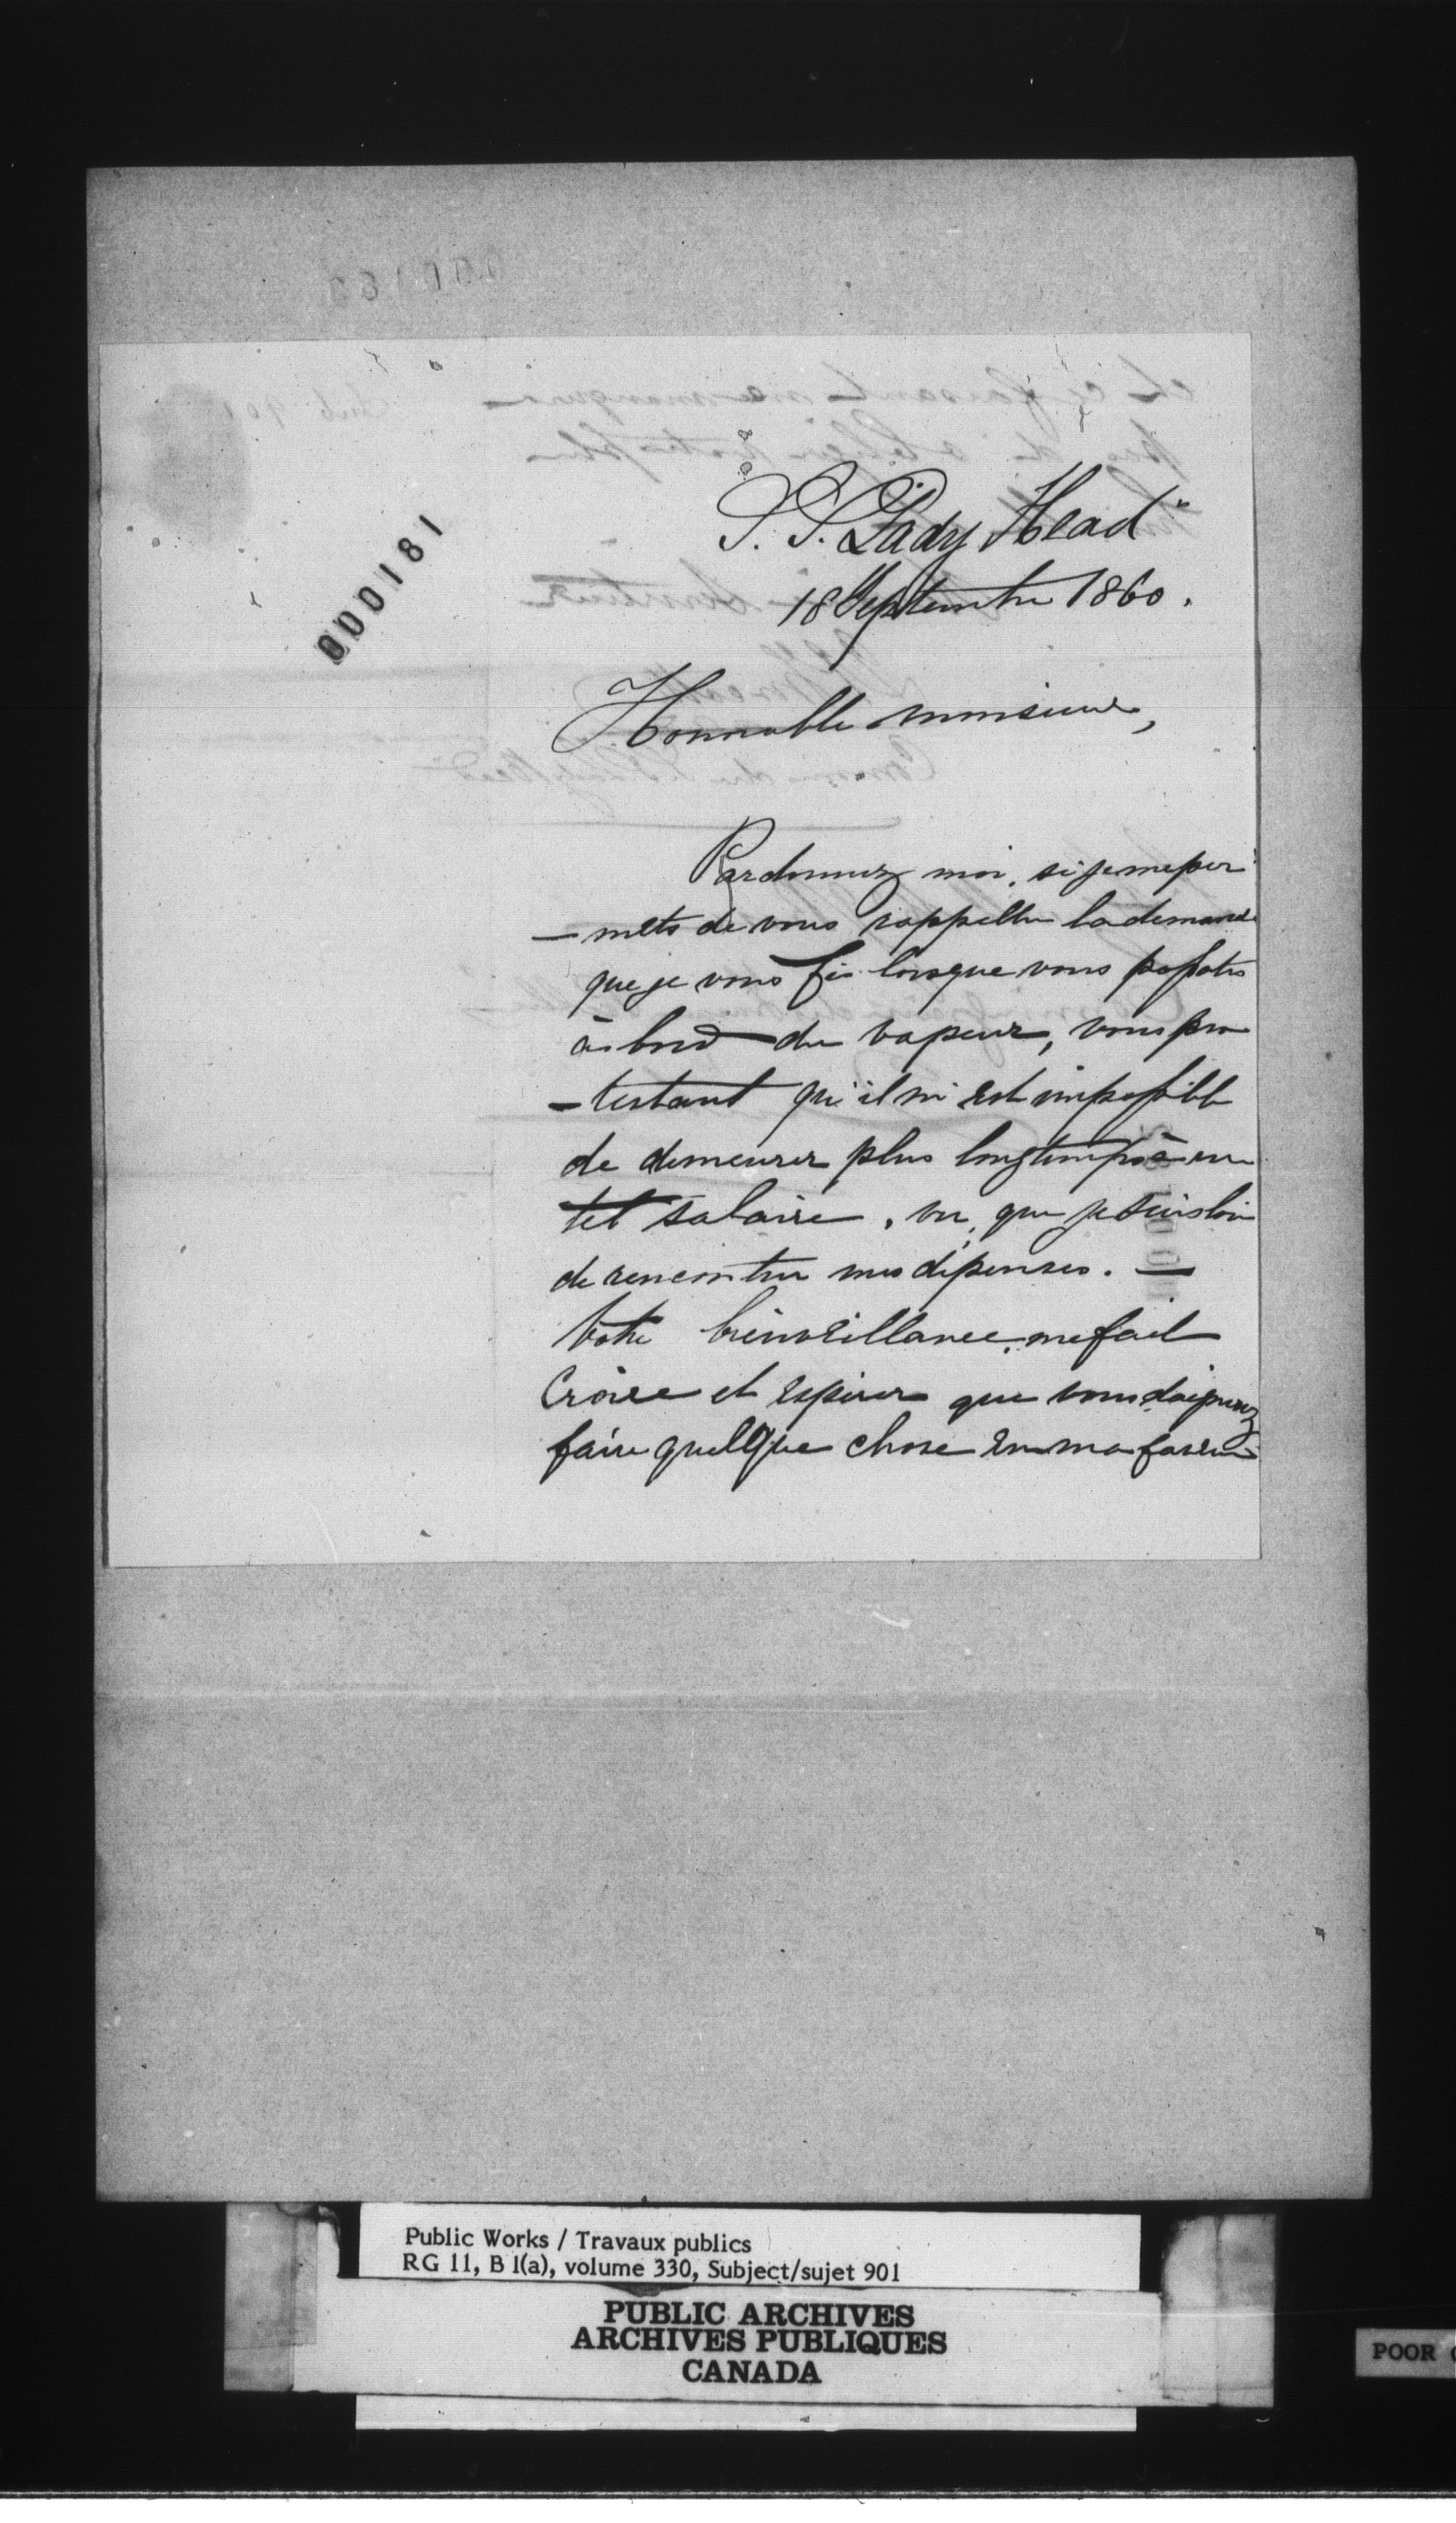 000181
S. S. "Lady Head"
18 Septembre 1860.
Honorable monsieur,
Pardonnez moi, si je me per
- mets de vous rappeller la demande
que je vous fis lorsque vous passates
à bord du vapeur, vous pro
- testant qu'il m'est impossible
de demeurer plus longtemps à un
tel salaire, vu, que je suis loin
de rencontrer mes dépenses. —
Votre bienveillance, me fait
Croire et Espérer que vous daignerez
faire quelque chose En ma faveur
Public Works / Travaux publics
RG 11, B 1(a), volume 330, Subject/sujet 901
PUBLIC ARCHIVES
ARCHIVES PUBLIQUES
CANADA
POOR